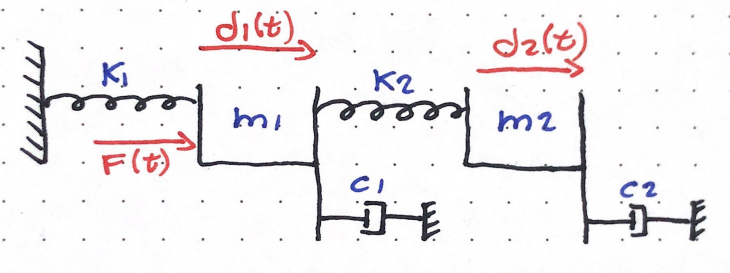 d1(t)
d2(t)
K1
K2
m1
m2
F(t)
C1
C2